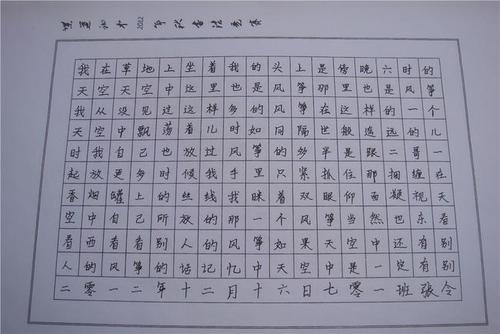 2012年秋书法竞赛
我在草地上坐着我的头上是傍晚六时的
天空天空中这里也是风筝那里也是风筝
我从没见过这样多的风筝在这样的一个
天空中飘荡着儿时如同隔世般遥远的儿
时我自己也放过风筝的多半是跟二哥一
起放更多时候我手里只紧抓住那捆缠在
香烟罐上的丝线我眯着双眼仰面凝视天
空中自己所放的那一个风筝当然也东看
看西看看别人的风筝如果天空中还有别
人的风筝的话记忆中天空中是一定有别
二零一二年十二月十六日七零一班张令